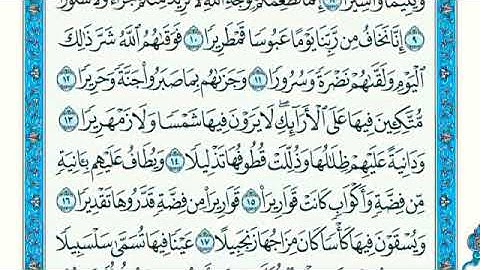 وَيَتِيمًا وَأَسِيرًا ٨ إِنَّمَا نُطْعِمُكُمْ لِوَجْهِ ٱللَّهِ لَا نُرِيدُ مِنكُمْ جَزَآءً وَلَا شُكُورًا
٩ إِنَّا نَخَافُ مِن رَّبِّنَا يَوْمًا عَبُوسًا قَمْطَرِيرًا ١٠ فَوَقَىٰهُمُ ٱللَّهُ شَرَّ ذَٰلِكَ
ٱلْيَوْمِ وَلَقَّىٰهُمْ نَضْرَةً وَسُرُورًا ١١ وَجَزَىٰهُم بِمَا صَبَرُوا۟ جَنَّةً وَحَرِيرًا ١٢
مُّتَّكِـِٔينَ فِيهَا عَلَى ٱلْأَرَآئِكِ ۖ لَا يَرَوْنَ فِيهَا شَمْسًا وَلَا زَمْهَرِيرًا ١٣
وَدَانِيَةً عَلَيْهِمْ ظِلَـٰلُهَا وَذُلِّلَتْ قُطُوفُهَا تَذْلِيلًا ١٤ وَيُطَافُ عَلَيْهِم بِـَٔانِيَةٍ
مِّن فِضَّةٍ وَأَكْوَابٍ كَانَتْ قَوَارِيرَا۠ ١٥ قَوَارِيرَا۟ مِن فِضَّةٍ قَدَّرُوهَا تَقْدِيرًا ١٦
وَيُسْقَوْنَ فِيهَا كَأْسًا كَانَ مِزَاجُهَا زَنجَبِيلًا ١٧ عَيْنًا فِيهَا تُسَمَّىٰ سَلْسَبِيلًا